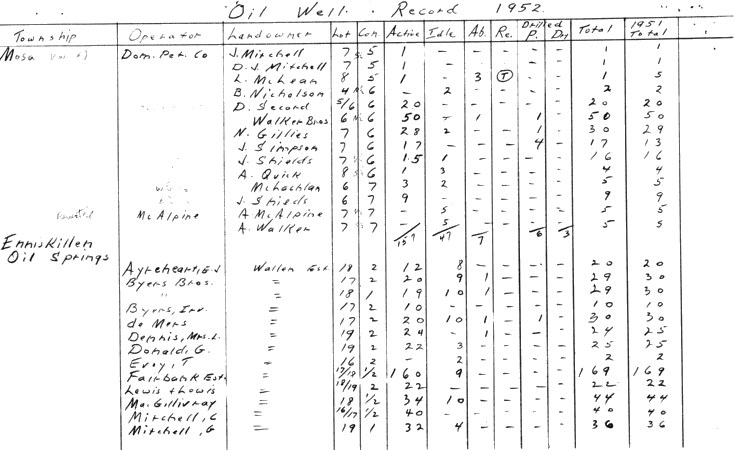 Oil Well Record 1952.
Township Operator Landowner Lot Con. Active Idle Ab. Re. Drilled P. Dry Total 1951 Total
Mosa Dom. Pet. Co J. Mitchell 7 5 1 - - - - - 1 1
D. J. Mitchell 7 5 1 - - - - - 1 1
L. McLean 8 5 1 - 3 (T) - - 1 5
B. Nicholson 4 6 - 2 - - - - 2 2
D. Secord 5/6 6 20 - - - - - 20 20
Walker Bros 6 6 50 - 1 1 - 50 50
N. Gillies 7 6 28 2 - - 1 - 30 29
J. Simpson 7 6 17 - - - 4 - 17 13
J. Shields 7 6 15 1 - - - - 16 16
A. Quick 8 6 1 3 - - - - 4 4
McLachlan 6 7 3 2 - - - - 5 5
J. Shieds 6 7 9 - - - - - 9 9
McAlpine A McAlpine 7 7 - 5 - - - - 5 5
A. Walker 7 7 - 5 - - - - 5 5
Enniskillen
Oil Springs
Ayrheart, E.J Wallen Est 18 2 12 8 - - - - 20 20
Byers Bros. = 17 2 20 9 1 - - - 29 30
" = 18 1 19 10 1 - - - 29 30
Byers, Irv. = 17 2 10 - - - - - 10 10
de Mers = 17 2 20 10 1 - 1 - 30 30
Dennis, Mrs. L. = 19 2 24 - 1 - - - 24 25
Donald, G. = 19 2 22 3 - - - - 25 25
Evoy, T = 16 2 - 2 - - - - 2 2
Fairbank Est. = 17/18 1/2 160 9 - - - - 169 169
Lewis + Lewis = 18/19 2 22 - - - - - 22 22
MacGillivray = 18 1/2 34 10 - - - - 44 44
Mitchell, C = 16/17 1/2 40 - - - - - 40 40
Mitchell, G = 19 1 32 4 - - - - 36 36